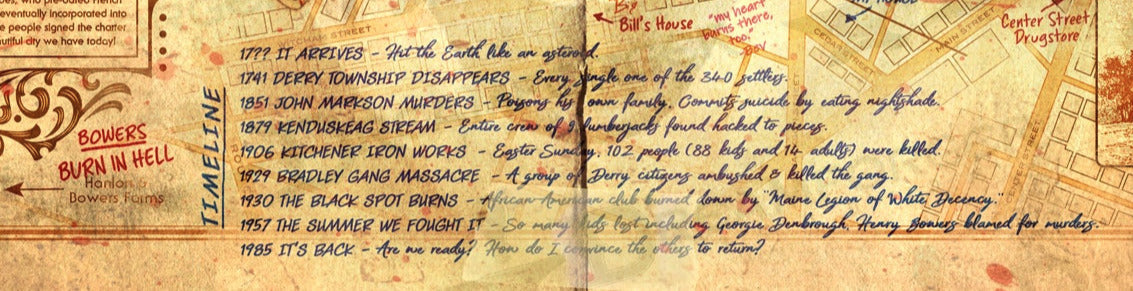 who pre-dated French
eventually incorporated into
people signed the charter
city we have today!
Bill's House
"my heart
burns there,
too."
Bev
Center Street
Drugstore
MAIN STREET
BOWERS
BURN IN HELL
Hanlon's
Bowers Farms
TIMELINE
17?? IT ARRIVES - Hit the Earth like an asteroid.
1741 DERRY TOWNSHIP DISAPPEARS - Every single one of the 340 settlers.
1851 JOHN MARKSON MURDERS - Poisons his own family, Commits suicide by eating nightshade.
1879 KENDUSKEAG STREAM - Entire crew of 9 lumberjacks found hacked to pieces.
1906 KITCHENER IRON WORKS - Easter Sunday, 102 people (88 kids and 14 adults) were killed.
1929 BRADLEY GANG MASSACRE - A group of Derry citizens ambushed & killed the gang.
1930 THE BLACK SPOT BURNS - African-American club burned down by "Maine Legion of White Decency."
1957 THE SUMMER WE FOUGHT IT - So many kids lost including Georgie Denbrough, Henry Bowers blamed for murders.
1985 IT'S BACK - Are we ready? How do I convince the others to return?